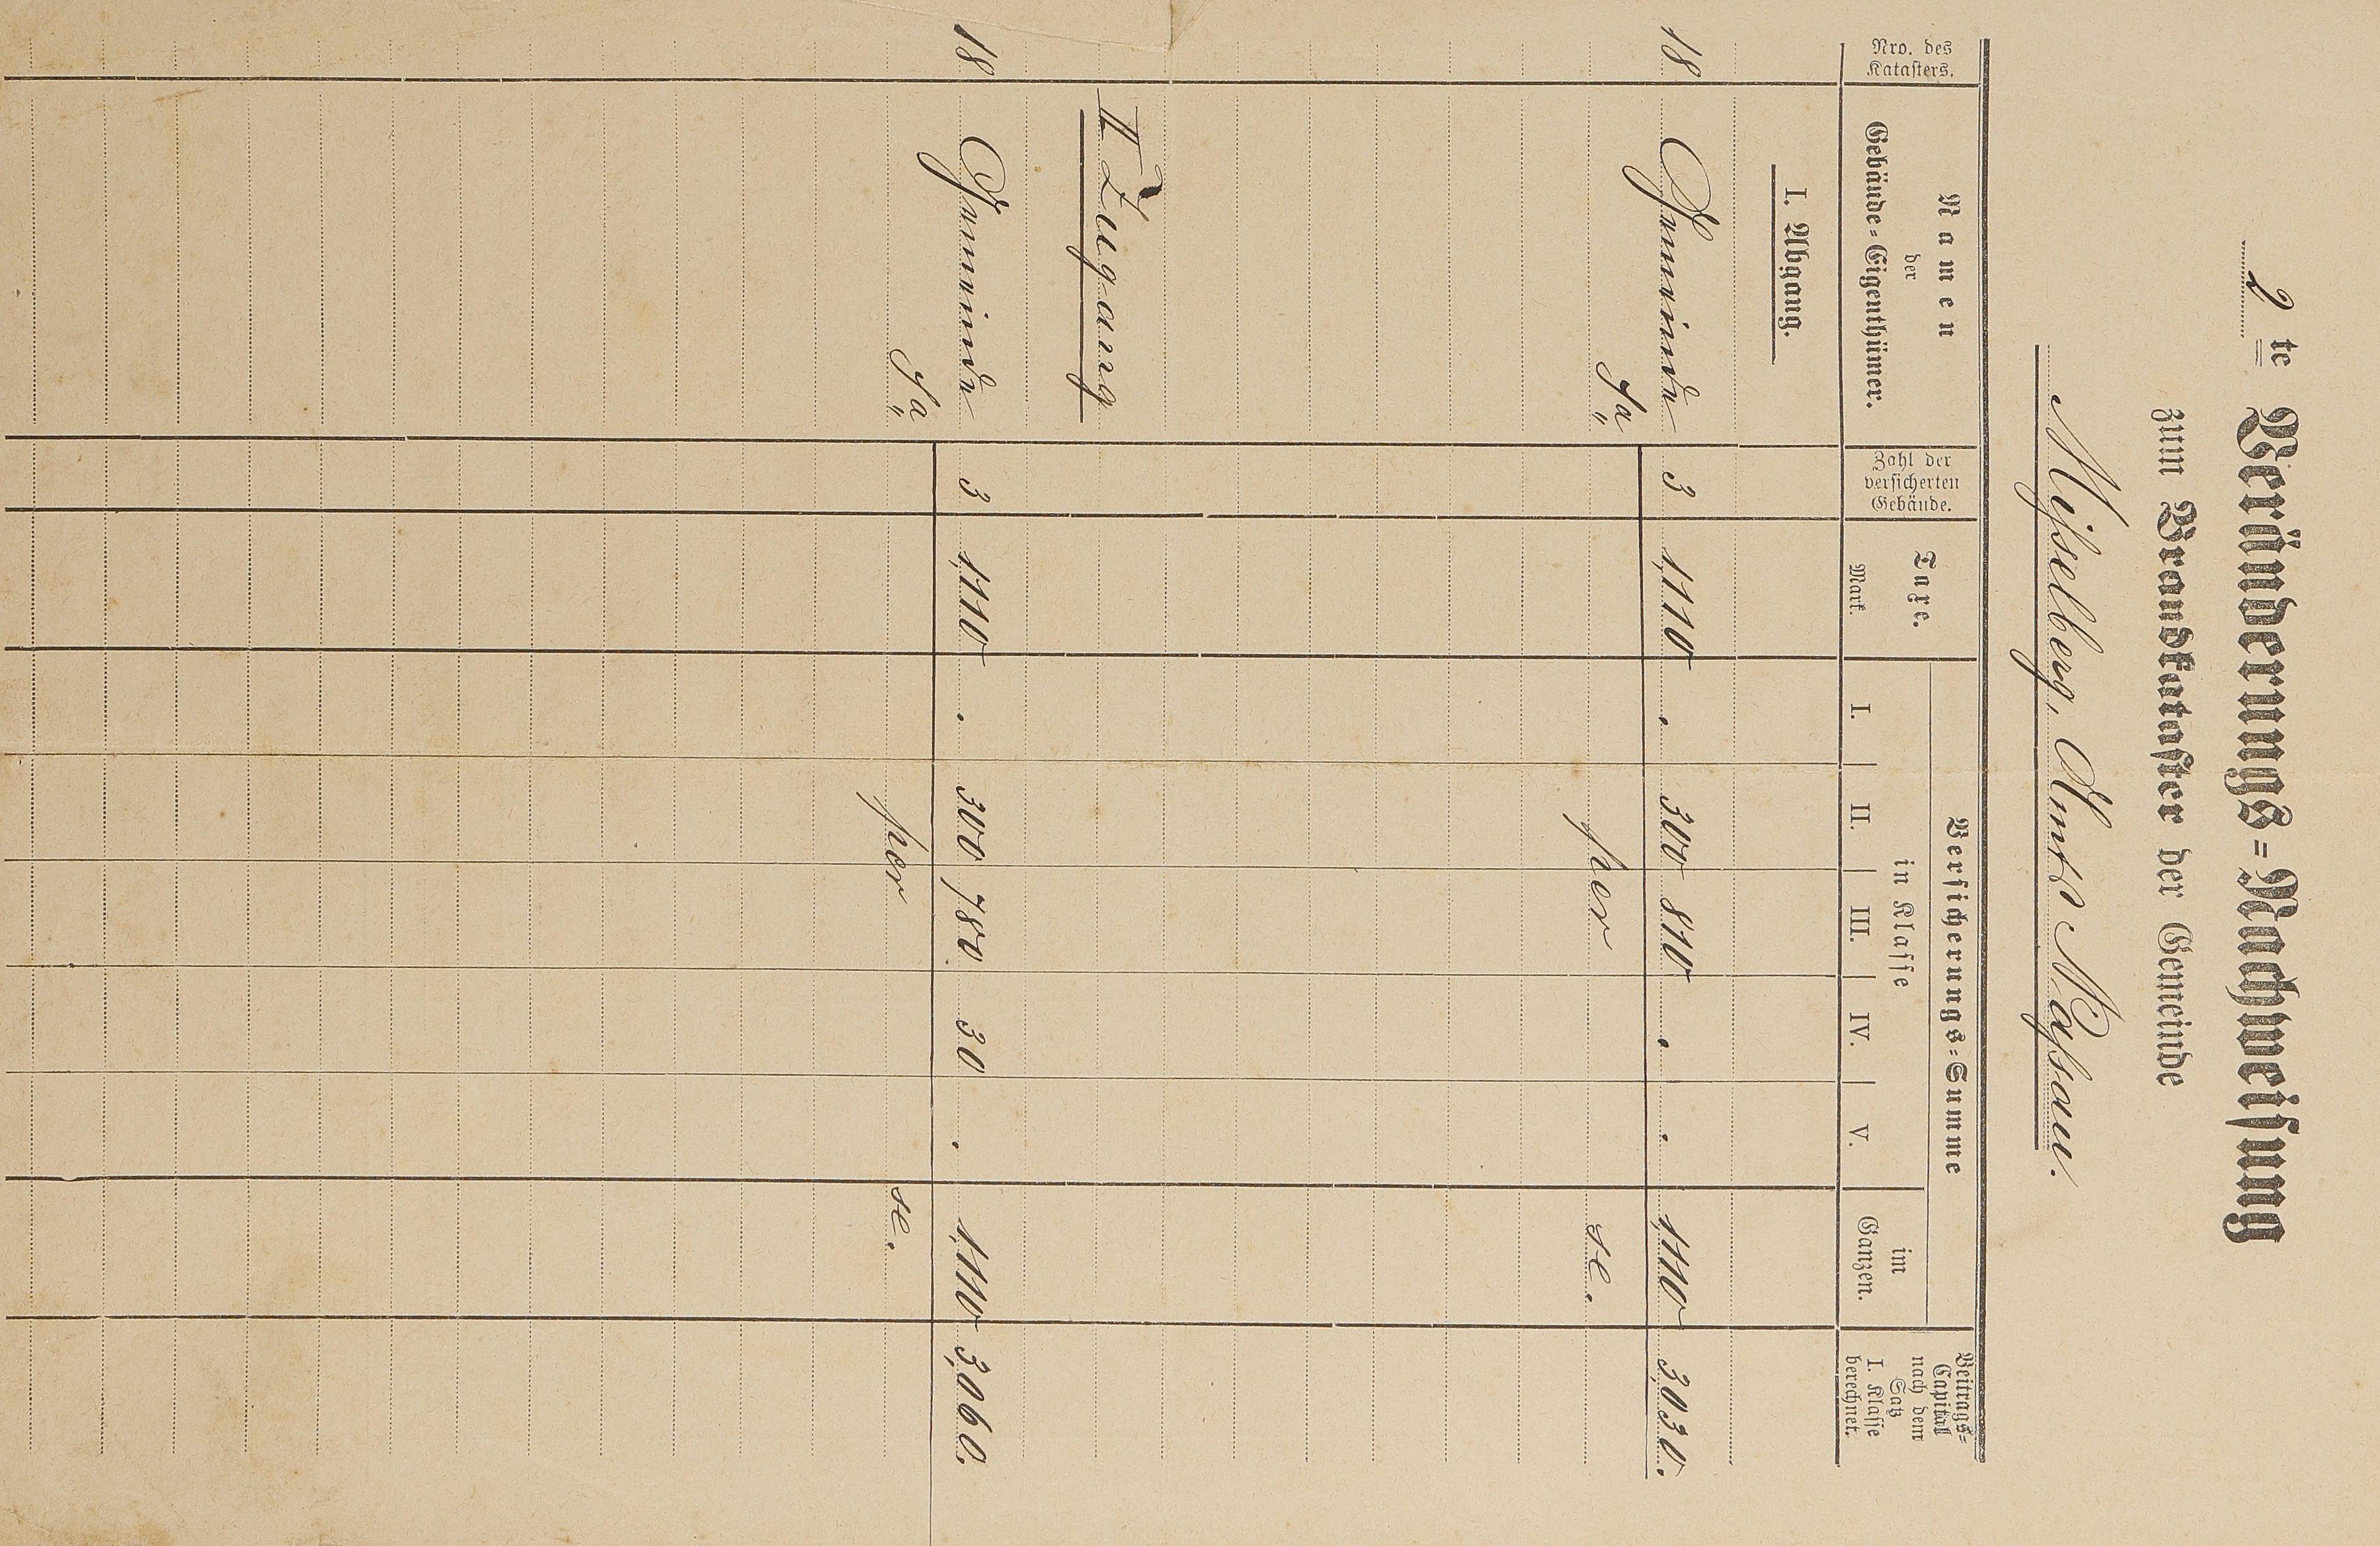 2te Veränderungs=Nachweisung
zum Brandkataster der Gemeinde
Misselberg, Amts Nassau.
Nro. des
Katasters.
Namen
der
Gebäude=Eigenthümer.
Zahl der
versicherten
Gebäude.
Taxe.
Mark
Versicherungs=Summe
in Klasse
I. II. III. IV. V.
im
Ganzen.
Beitrags=
Capital
nach dem
Satz
I. Klasse
berechnet.
I. Abgang.
18 Gemeinde 3 1,110 . 300 810 . . 1,110 3,030.
Sa per se.
II Zugang
18 Gemeinde 3 1,110 . 300 780 30 . 1,110 3,060.
Sa per se.